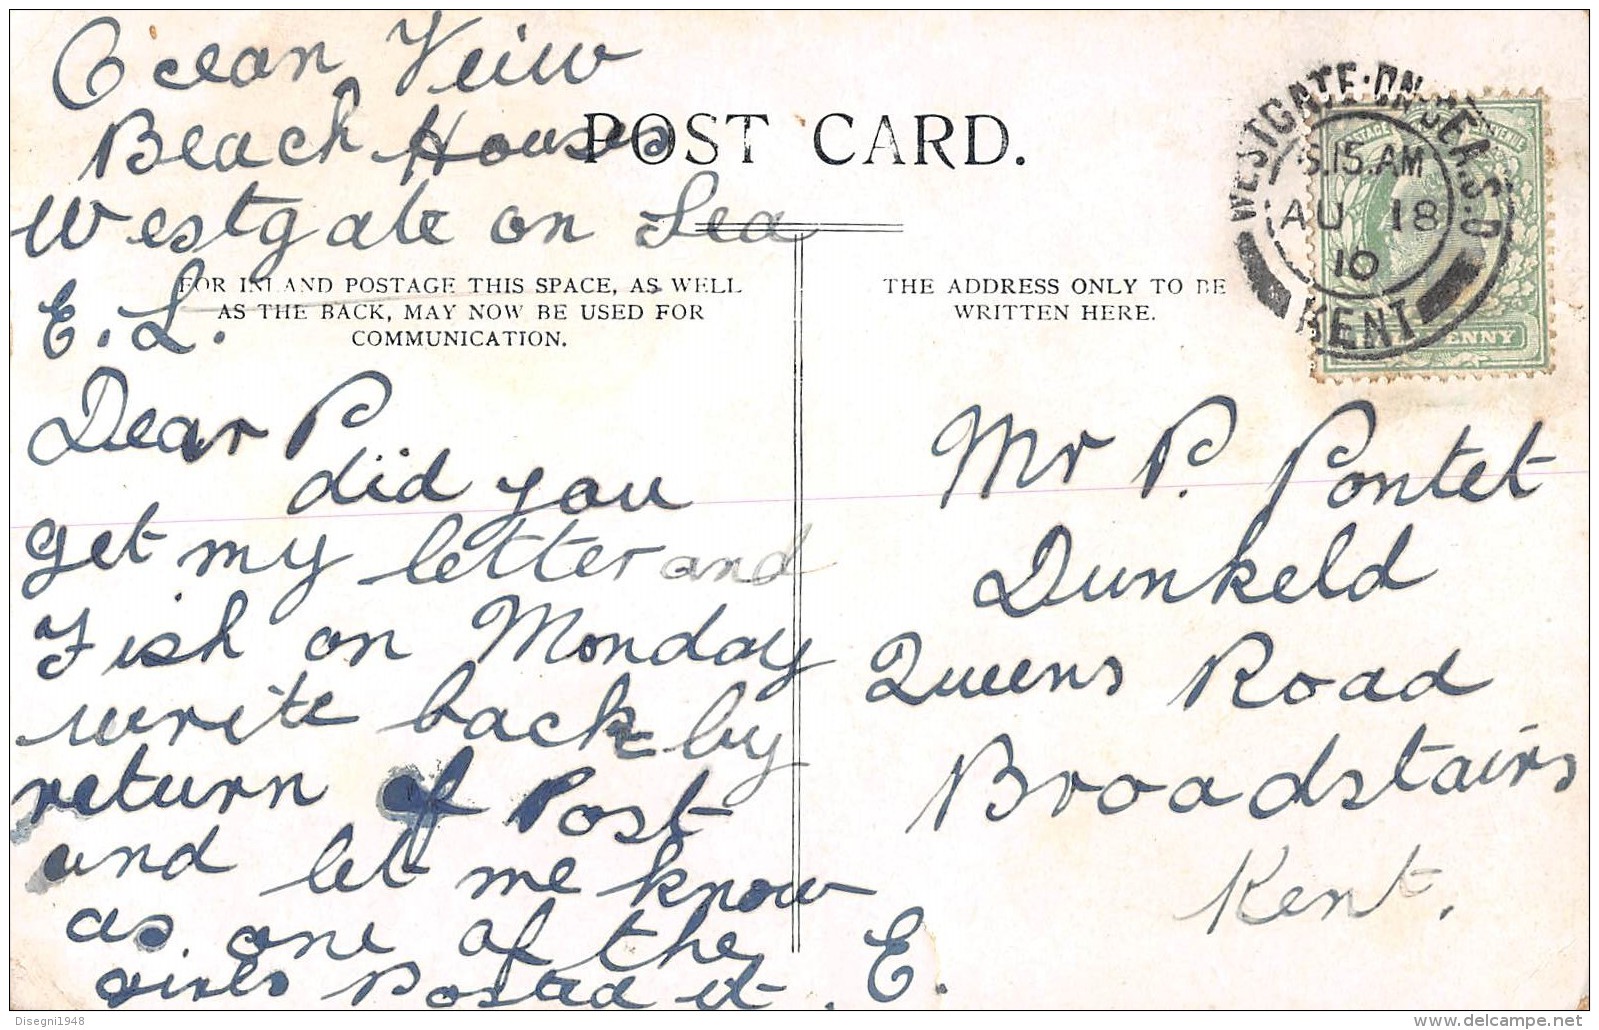 Ocean Veiw
Beach Houses
Westgate on Sea
E. L.
POST CARD.
FOR INLAND POSTAGE THIS SPACE, AS WELL
AS THE BACK, MAY NOW BE USED FOR
COMMUNICATION.
Dear P
did you
get my letter and
Fish on Monday
write back by
return of Post
and let me know
as one of the
girls Posted it. E.
THE ADDRESS ONLY TO BE
WRITTEN HERE.
WESTGATE-ON-SEA.S.O
6.15.AM
AU 18
10
KENT
POSTAGE
PENNY
Mr P. Pontet
Dunkeld
Queens Road
Broadstairs
Kent.
Disegni1948
www.delcampe.net